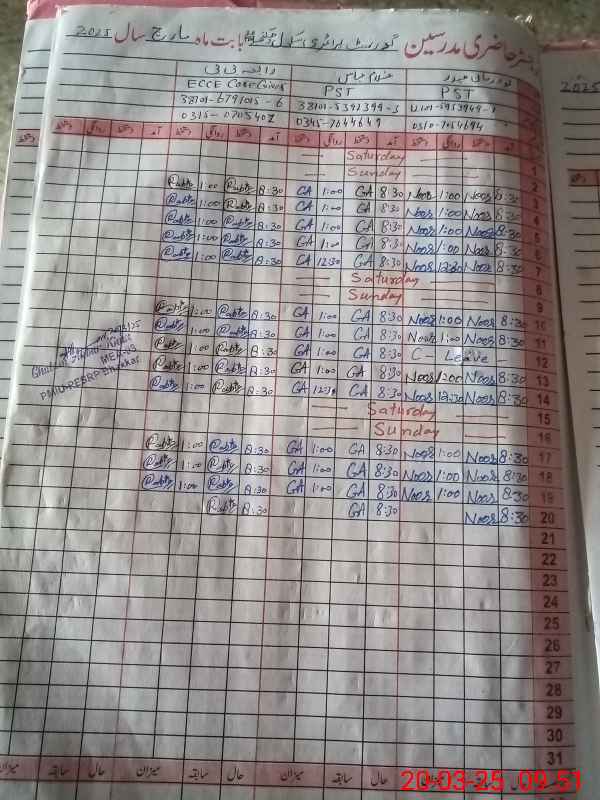 حاضری مدرسین گورنمنٹ پرائمری سکول بابت ماہ مارچ سال 2025
2025
غلام عباس
PST PST ECCE Care Giver
38101-5392399-3 38101-6791015-6
0310-7054694 0345-7644649 0315-0705402
آمد دستخط روانگی دستخط آمد دستخط روانگی دستخط آمد دستخط روانگی دستخط آمد دستخط روانگی دستخط
1 Saturday
2 Sunday
3 8:30 Noor 1:00 Noor 8:30 GA 1:00 GA 8:30 Rabia 1:00 Rabia
4 8:30 Noor 1:00 Noor 8:30 GA 1:00 GA 8:30 Rabia 1:00 Rabia
5 8:30 Noor 1:00 Noor 8:30 GA 1:00 GA 8:30 Rabia 1:00 Rabia
6 8:30 Noor 1:00 Noor 8:30 GA 1:00 GA 8:30 Rabia 1:00 Rabia
7 8:30 Noor 12:30 Noor 8:30 GA 12:30 GA 8:30 Rabia 1:00 Rabia
8 Saturday
9 Sunday
10 8:30 Noor 1:00 Noor 8:30 GA 1:00 GA 8:30 Rabia 1:00 Rabia
11 8:30 Noor 1:00 Noor 8:30 GA 1:00 GA 8:30 Rabia 1:00 Rabia
12 C - Leave 8:30 GA 1:00 GA 8:30 Rabia 1:00 Rabia
13 8:30 Noor 1:00 Noor 8:30 GA 1:00 GA 8:30 Rabia 1:00 Rabia
14 8:30 Noor 12:30 Noor 8:30 GA 12:30 GA 8:30 Rabia 1:00 Rabia
15 Saturday
16 Sunday
17 8:30 Noor 1:00 Noor 8:30 GA 1:00 GA 8:30 Rabia 1:00 Rabia
18 8:30 Noor 1:00 Noor 8:30 GA 1:00 GA 8:30 Rabia 1:00 Rabia
19 8:30 Noor 1:00 Noor 8:30 GA 1:00 GA 8:30 Rabia 1:00 Rabia
20 8:30 Noor 8:30 GA 8:30 Rabia
21
22
23
24
25
26
27
28
29
30
31
PMIU-PESRP Bhakkar
حال سابقہ میزان حال سابقہ میزان حال سابقہ میزان حال سابقہ میزان
20-03-25 09:51